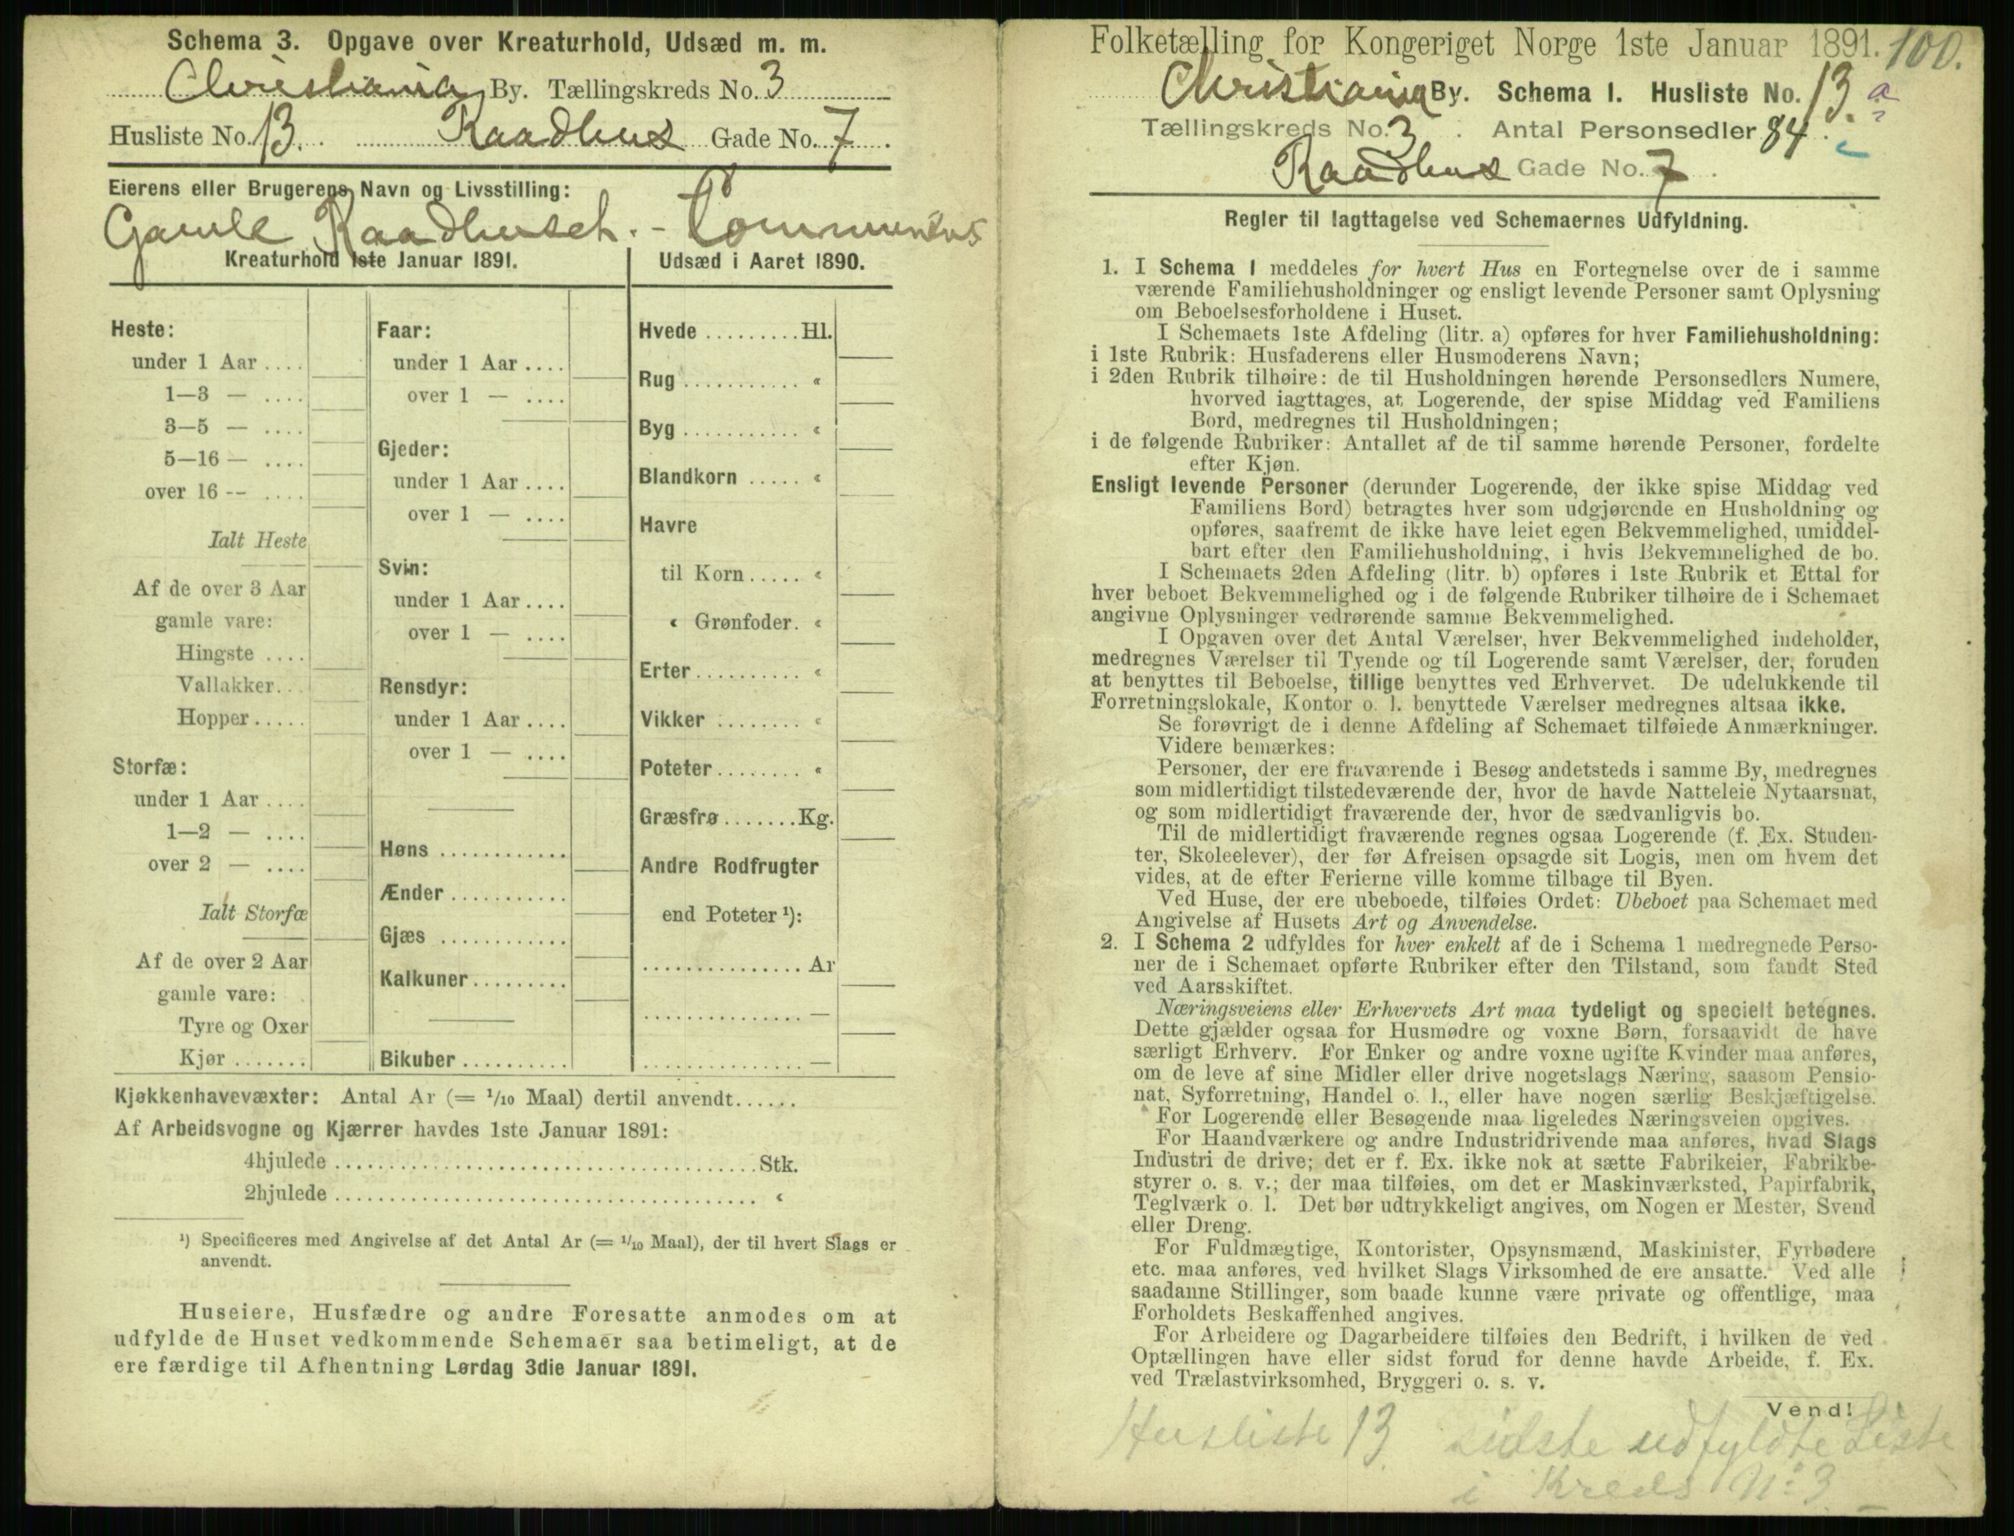 Schema 3. Opgave over Kreaturhold, Udsæd m. m.
Christiania By. Tællingskreds No. 3
Husliste No. 13. Raadhus Gade No. 7.
Eierens eller Brugerens Navn og Livsstilling:
Gamle Raadhuset. -
Kreaturhold 1ste Januar 1891.
Heste:
under 1 Aar ....
1—3 — ....
3—5 — ....
5—16 — ....
over 16 -- ....
Ialt Heste
Af de over 3 Aar
gamle vare:
Hingste ....
Vallakker...
Hopper.....
Storfæ:
under 1 Aar ....
1—2 — ....
over 2 — ....
Ialt Storfæ
Af de over 2 Aar
gamle vare:
Tyre og Oxer
Kjør .......
Faar:
under 1 Aar ....
over 1 — ....
Gjeder:
under 1 Aar ....
over 1 — ....
Svin:
under 1 Aar ....
over 1 — ....
Rensdyr:
under 1 Aar ....
over 1 — ....
Høns ............
Ænder ...........
Gjæs ............
Kalkuner.........
Bikuber ..........
Udsæd i Aaret 1890.
Hvede .........Hl.
Rug ........... «
Byg ........... «
Blandkorn ..... «
Havre
til Korn ..... «
« Grønfoder. «
Erter .......... «
Vikker ........ «
Poteter........ «
Græsfrø.......Kg.
Andre Rodfrugter
end Poteter ¹):
............... Ar
............... —
............... —
Kjøkkenhavevæxter: Antal Ar (= 1/10 Maal) dertil anvendt......
Af Arbeidsvogne og Kjærrer havdes 1ste Januar 1891:
4hjulede ........................................Stk.
2hjulede ........................................ «
¹) Specificeres med Angivelse af det Antal Ar (= 1/10 Maal), der til hvert Slags er
anvendt.
Huseiere, Husfædre og andre Foresatte anmodes om at
udfylde de Huset vedkommende Schemaer saa betimeligt, at de
ere færdige til Afhentning Lørdag 3die Januar 1891.
Folketælling for Kongeriget Norge 1ste Januar 1891. 100.
Christiania By. Schema I. Husliste No. 13. a
Tællingskreds No. 3. Antal Personsedler 84.
Raadhus Gade No. 7.
Regler til Iagttagelse ved Schemaernes Udfyldning.
1. I Schema I meddeles for hvert Hus en Fortegnelse over de i samme
værende Familiehusholdninger og ensligt levende Personer samt Oplysning
om Beboelsesforholdene i Huset.
I Schemaets 1ste Afdeling (litr. a) opføres for hver Familiehusholdning:
i 1ste Rubrik: Husfaderens eller Husmoderens Navn;
i 2den Rubrik tilhøire: de til Husholdningen hørende Personsedlers Numere,
hvorved iagttages, at Logerende, der spise Middag ved Familiens
Bord, medregnes til Husholdningen;
i de følgende Rubriker: Antallet af de til samme hørende Personer, fordelte
efter Kjøn.
Ensligt levende Personer (derunder Logerende, der ikke spise Middag ved
Familiens Bord) betragtes hver som udgjørende en Husholdning og
opføres, saafremt de ikke have leiet egen Bekvemmelighed, umiddel-
bart efter den Familiehusholdning, i hvis Bekvemmelighed de bo.
I Schemaets 2den Afdeling (litr. b) opføres i 1ste Rubrik et Ettal for
hver beboet Bekvemmelighed og i de følgende Rubriker tilhøire de i Schemaet
angivne Oplysninger vedrørende samme Bekvemmelighed.
I Opgaven over det Antal Værelser, hver Bekvemmelighed indeholder,
medregnes Værelser til Tyende og til Logerende samt Værelser, der, foruden
at benyttes til Beboelse, tillige benyttes ved Erhvervet. De udelukkende til
Forretningslokale, Kontor o. l. benyttede Værelser medregnes altsaa ikke.
Se forøvrigt de i denne Afdeling af Schemaet tilføiede Anmærkninger.
Videre bemærkes:
Personer, der ere fraværende i Besøg andetsteds i samme By, medregnes
som midlertidigt tilstedeværende der, hvor de havde Natteleie Nytaarsnat,
og som midlertidigt fraværende der, hvor de sædvanligvis bo.
Til de midlertidigt fraværende regnes ogsaa Logerende (f. Ex. Studen-
ter, Skoleelever), der før Afreisen opsagde sit Logis, men om hvem det
vides, at de efter Ferierne ville komme tilbage til Byen.
Ved Huse, der ere ubeboede, tilføies Ordet: Ubeboet paa Schemaet med
Angivelse af Husets Art og Anvendelse.
2. I Schema 2 udfyldes for hver enkelt af de i Schema 1 medregnede Perso-
ner de i Schemaet opførte Rubriker efter den Tilstand, som fandt Sted
ved Aarsskiftet.
Næringsveiens eller Erhvervets Art maa tydeligt og specielt betegnes.
Dette gjælder ogsaa for Husmødre og voxne Børn, forsaavidt de have
særligt Erhverv. For Enker og andre voxne ugifte Kvinder maa anføres,
om de leve af sine Midler eller drive nogetslags Næring, saasom Pensio-
nat, Syforretning, Handel o. l., eller have nogen særlig Beskjæftigelse.
For Logerende eller Besøgende maa ligeledes Næringsveien opgives.
For Haandværkere og andre Industridrivende maa anføres, hvad Slags
Industri de drive; det er f. Ex. ikke nok at sætte Fabrikeier, Fabrikbe-
styrer o. s. v.; der maa tilføies, om det er Maskinværksted, Papirfabrik,
Teglværk o. l. Det bør udtrykkeligt angives, om Nogen er Mester, Svend
eller Dreng.
For Fuldmægtige, Kontorister, Opsynsmænd, Maskinister, Fyrbødere
etc. maa anføres, ved hvilket Slags Virksomhed de ere ansatte. Ved alle
saadanne Stillinger, som baade kunne være private og offentlige, maa
Forholdets Beskaffenhed angives.
For Arbeidere og Dagarbeidere tilføies den Bedrift, i hvilken de ved
Optællingen have eller sidst forud for denne havde Arbeide, f. Ex.
ved Trælastvirksomhed, Bryggeri o. s. v.
Vend!
Husliste 13 sidste udfyldte Liste
i Kreds No 3